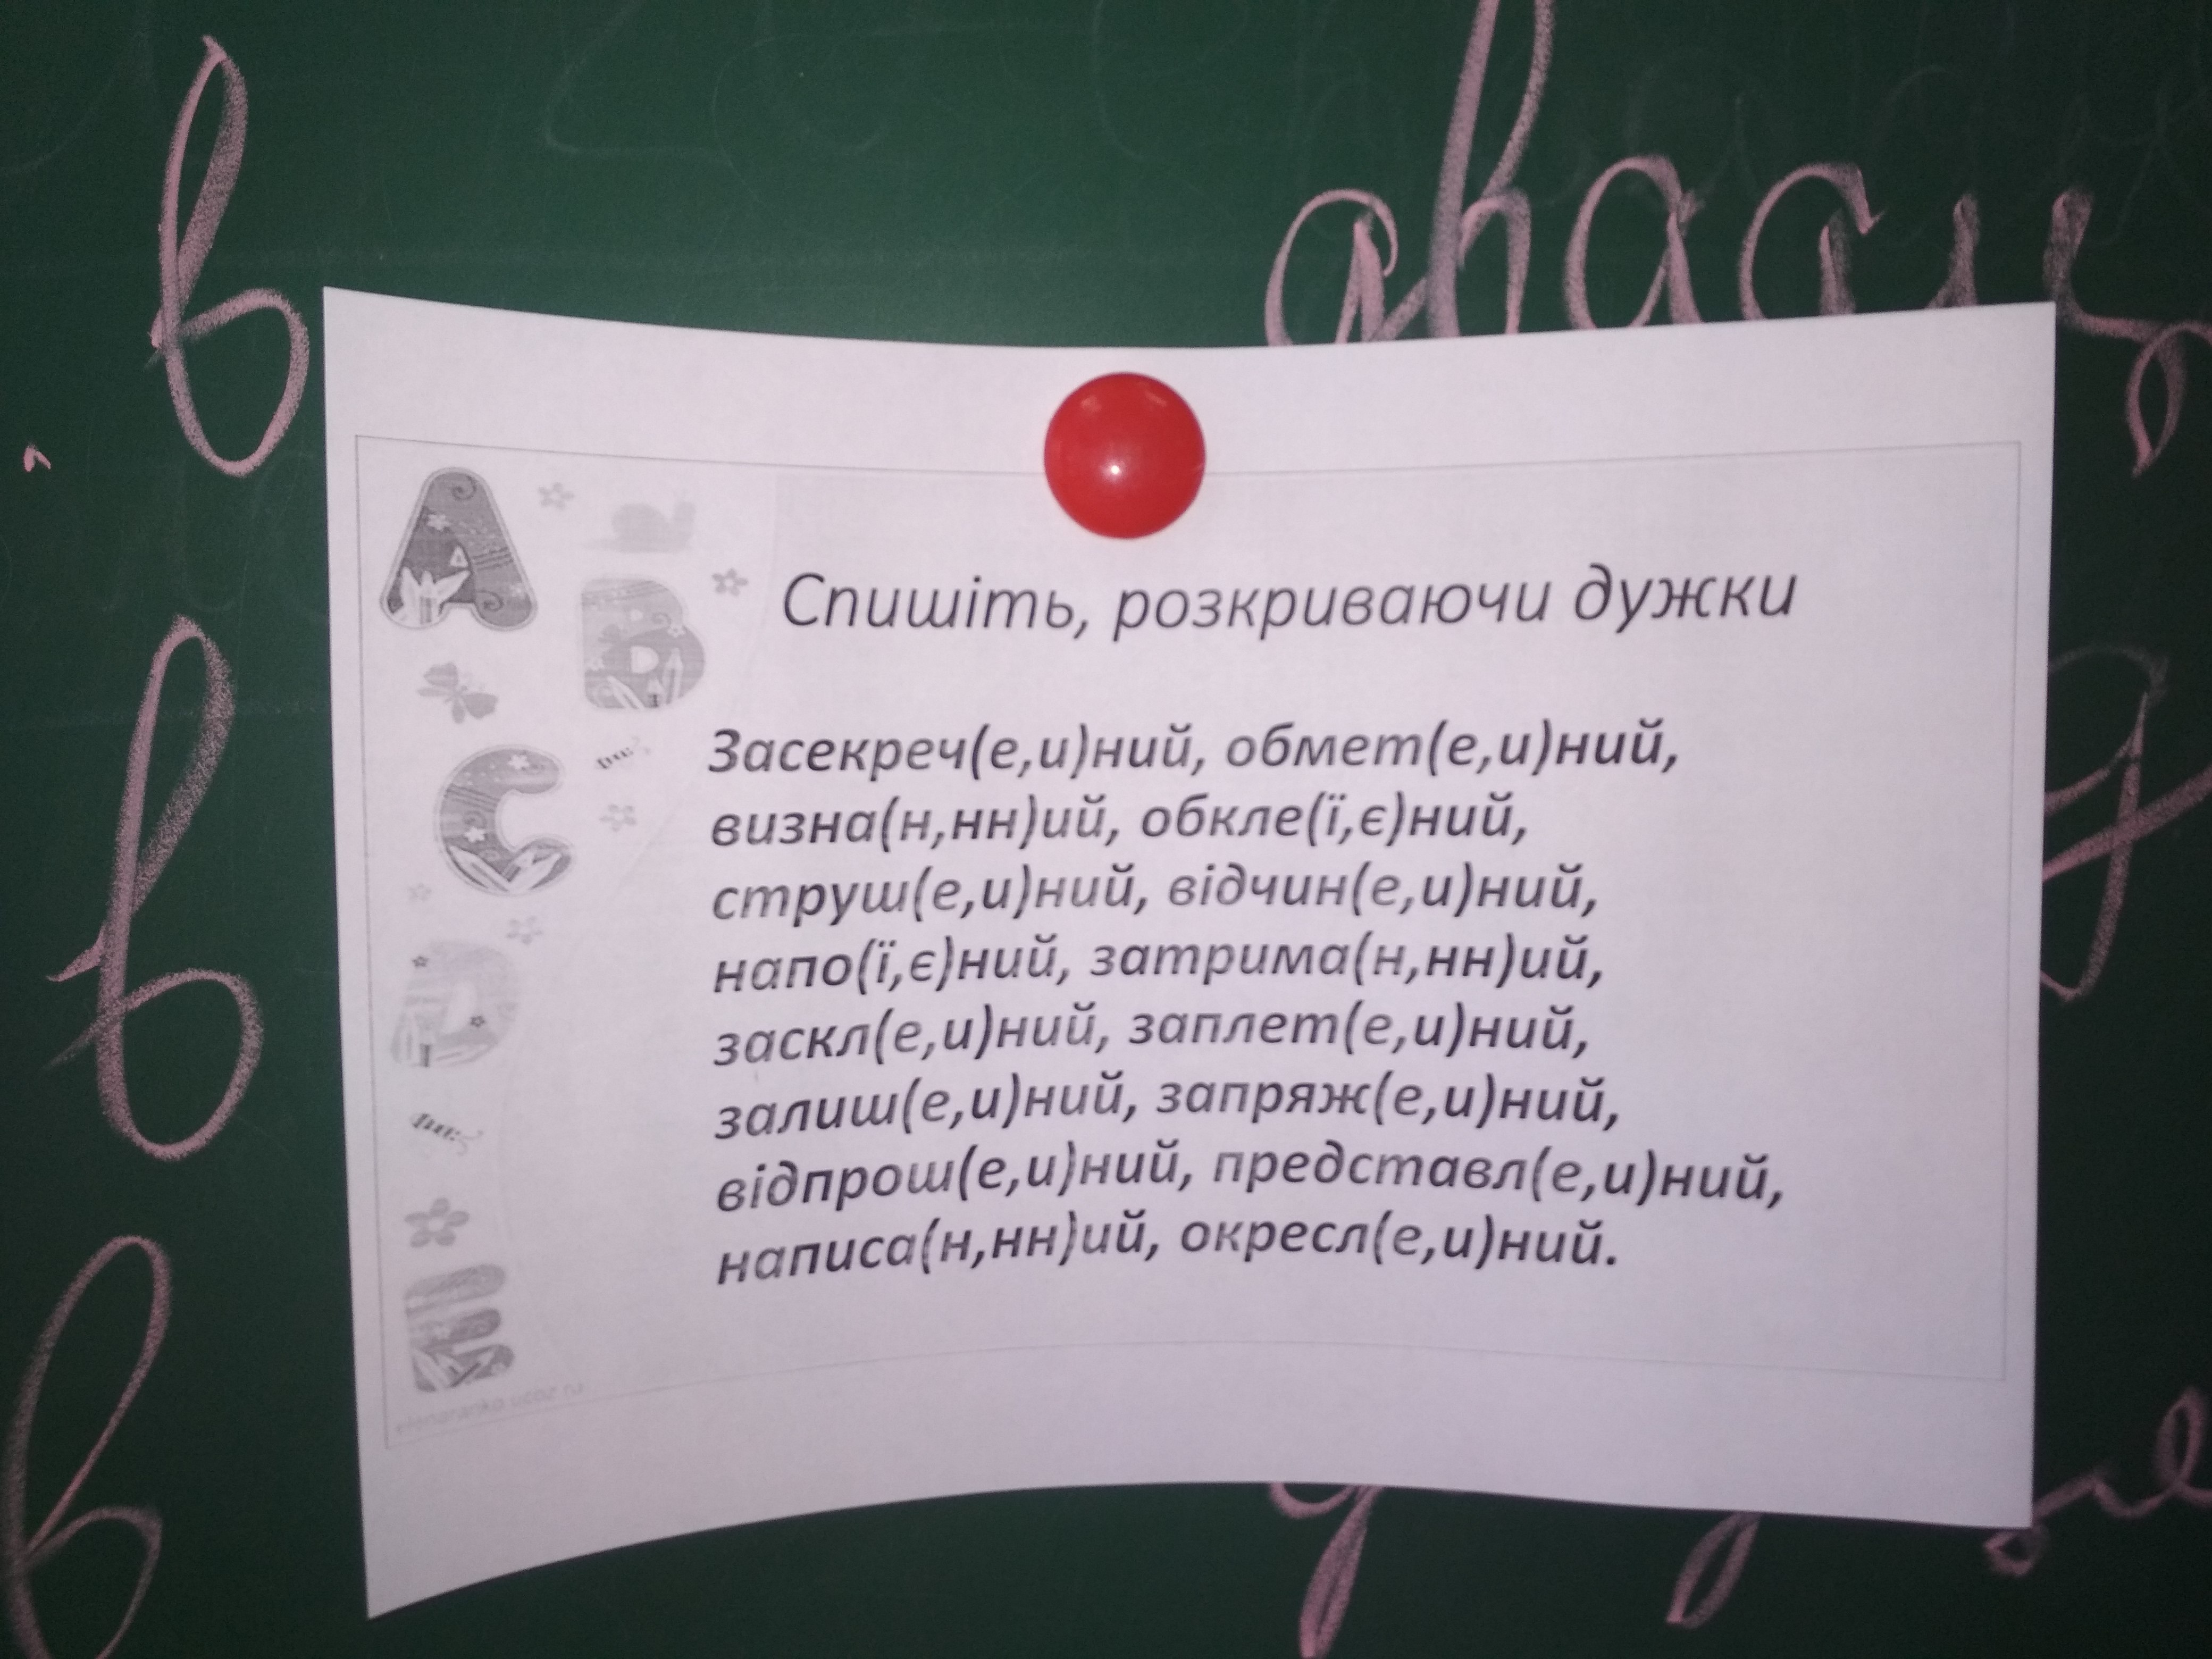 в
в
в
Спишіть, розкриваючи дужки
Засекреч(е,и)ний, обмет(е,и)ний,
визна(н,нн)ий, обкле(ї,є)ний,
струш(е,и)ний, відчин(е,и)ний,
напо(ї,є)ний, затрима(н,нн)ий,
заскл(е,и)ний, заплет(е,и)ний,
залиш(е,и)ний, запряж(е,и)ний,
відпрош(е,и)ний, представл(е,и)ний,
написа(н,нн)ий, окресл(е,и)ний.
A
B
C
D
E